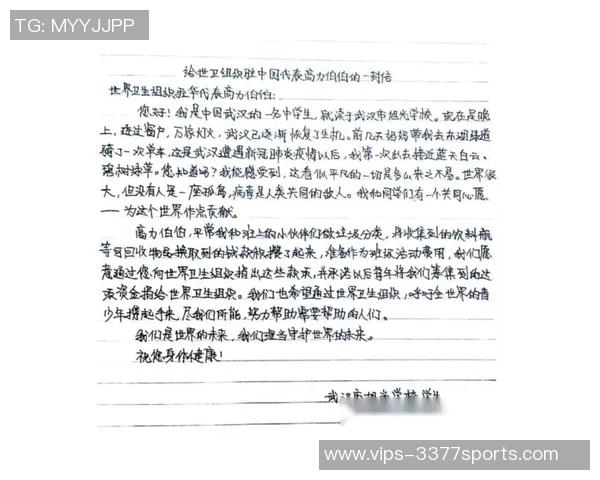 TG: MYYJJPP
给世卫组织驻中国代表高力伯伯的一封信
世界卫生组织驻华代表高力伯伯:
您好!我是中国武汉的一名中学生,就读于武汉市旭光学校。现在是晚
上,透过窗户,万家灯火,武汉已逐渐恢复了生机。前几天妈妈带我去东湖绿道
骑了一次单车,这是武汉遭遇新冠肺炎疫情以后,我第一次出去接近蓝天白云、
碧树绿草。您知道吗?我能感受到,这看似平凡的一切是多么来之不易。世界很
大,但没有人是一座孤岛,病毒是人类共同的敌人。我和同学们有一个共同心愿
——为这个世界作点贡献。
高力伯伯,平常我和班上的小伙伴们做垃圾分类,将收集到的饮料瓶
等可回收物品换取到的钱款积攒了起来,准备作为班级活动费用,我们愿
意通过您向世界卫生组织捐出这些款项,并承诺以后每年将我们筹集到的这
项资金捐给世界卫生组织。我们也希望通过世界卫生组织,呼吁全世界的青
少年携起手来,尽我们所能,努力帮助需要帮助的人们。
我们是世界的未来,我们理当守护世界的未来。
祝您身体健康!
武汉市旭光学校学生
www.vips-3377sports.com